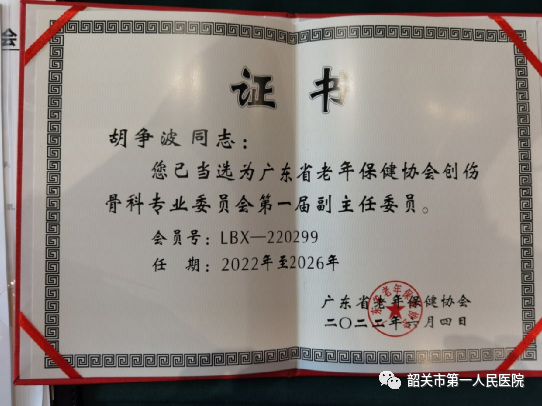 会
证书
胡争波同志：
您已当选为广东省老年保健协会创伤
骨科专业委员会第一届副主任委员。
会员号：LBX—220299
任 期：2022年至2026年
广东省老年保健协会
二〇二二年 月四日
韶关市第一人民医院